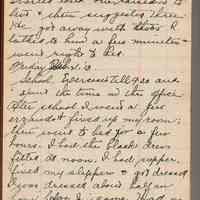 but & then suggested three
He got away with those. I
talked to him a few minutes &
went right to bed.
Friday
School. Exercises till 9:20 and
spent the time in the office
After school I went a few
errands & fixed up my room;
then went to bed for a few
hours. I had the black dress
fitted at noon. I had supper,
fixed my slippers & got dressed
I was dressed about half an
hour